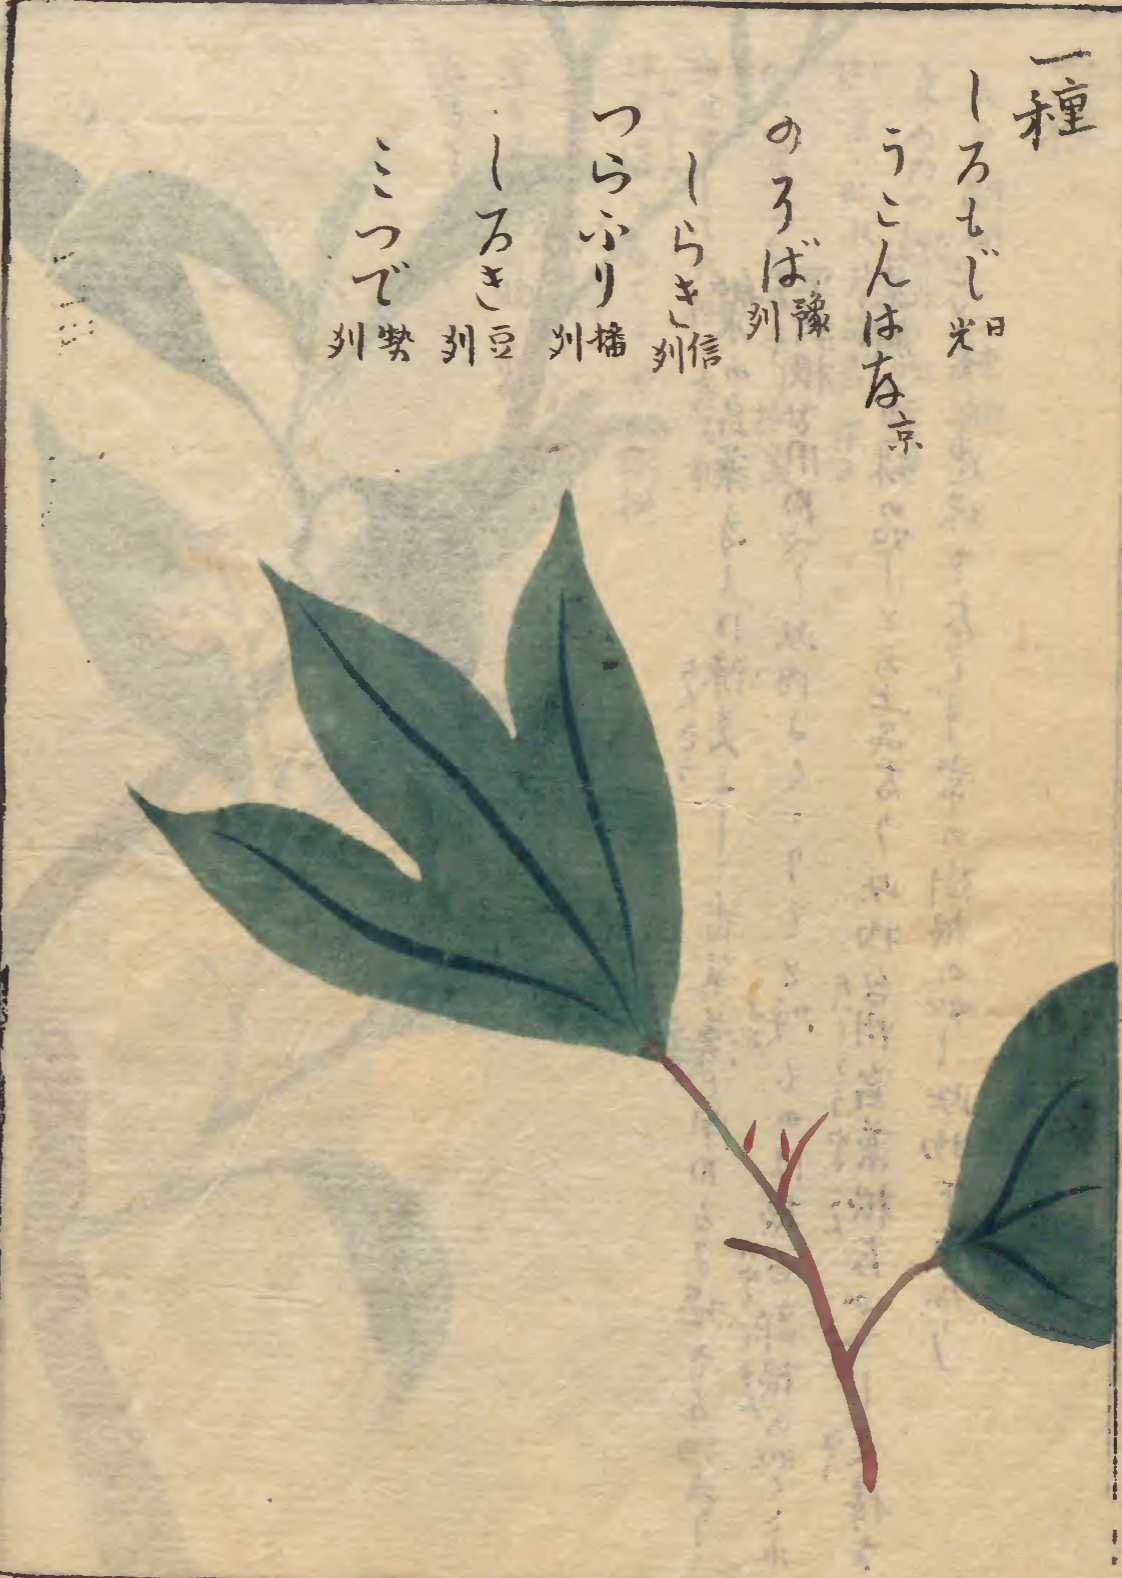 一種
しろもじ 日光
うこんはな 京
のろば 豫州
しらき 信州
つらふり 播州
しろき 豆州
みつで 勢州